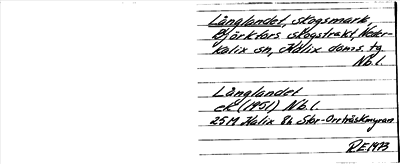 Långlandet, skogsmark,
Björkfors skogstrakt, Neder-
kalix sn, Kalix doms. tg
Nb.l.
Långlandet
ek (1951) Nb.l.
25M Kalix 8h Stor-Orrträskmyran
RE1973